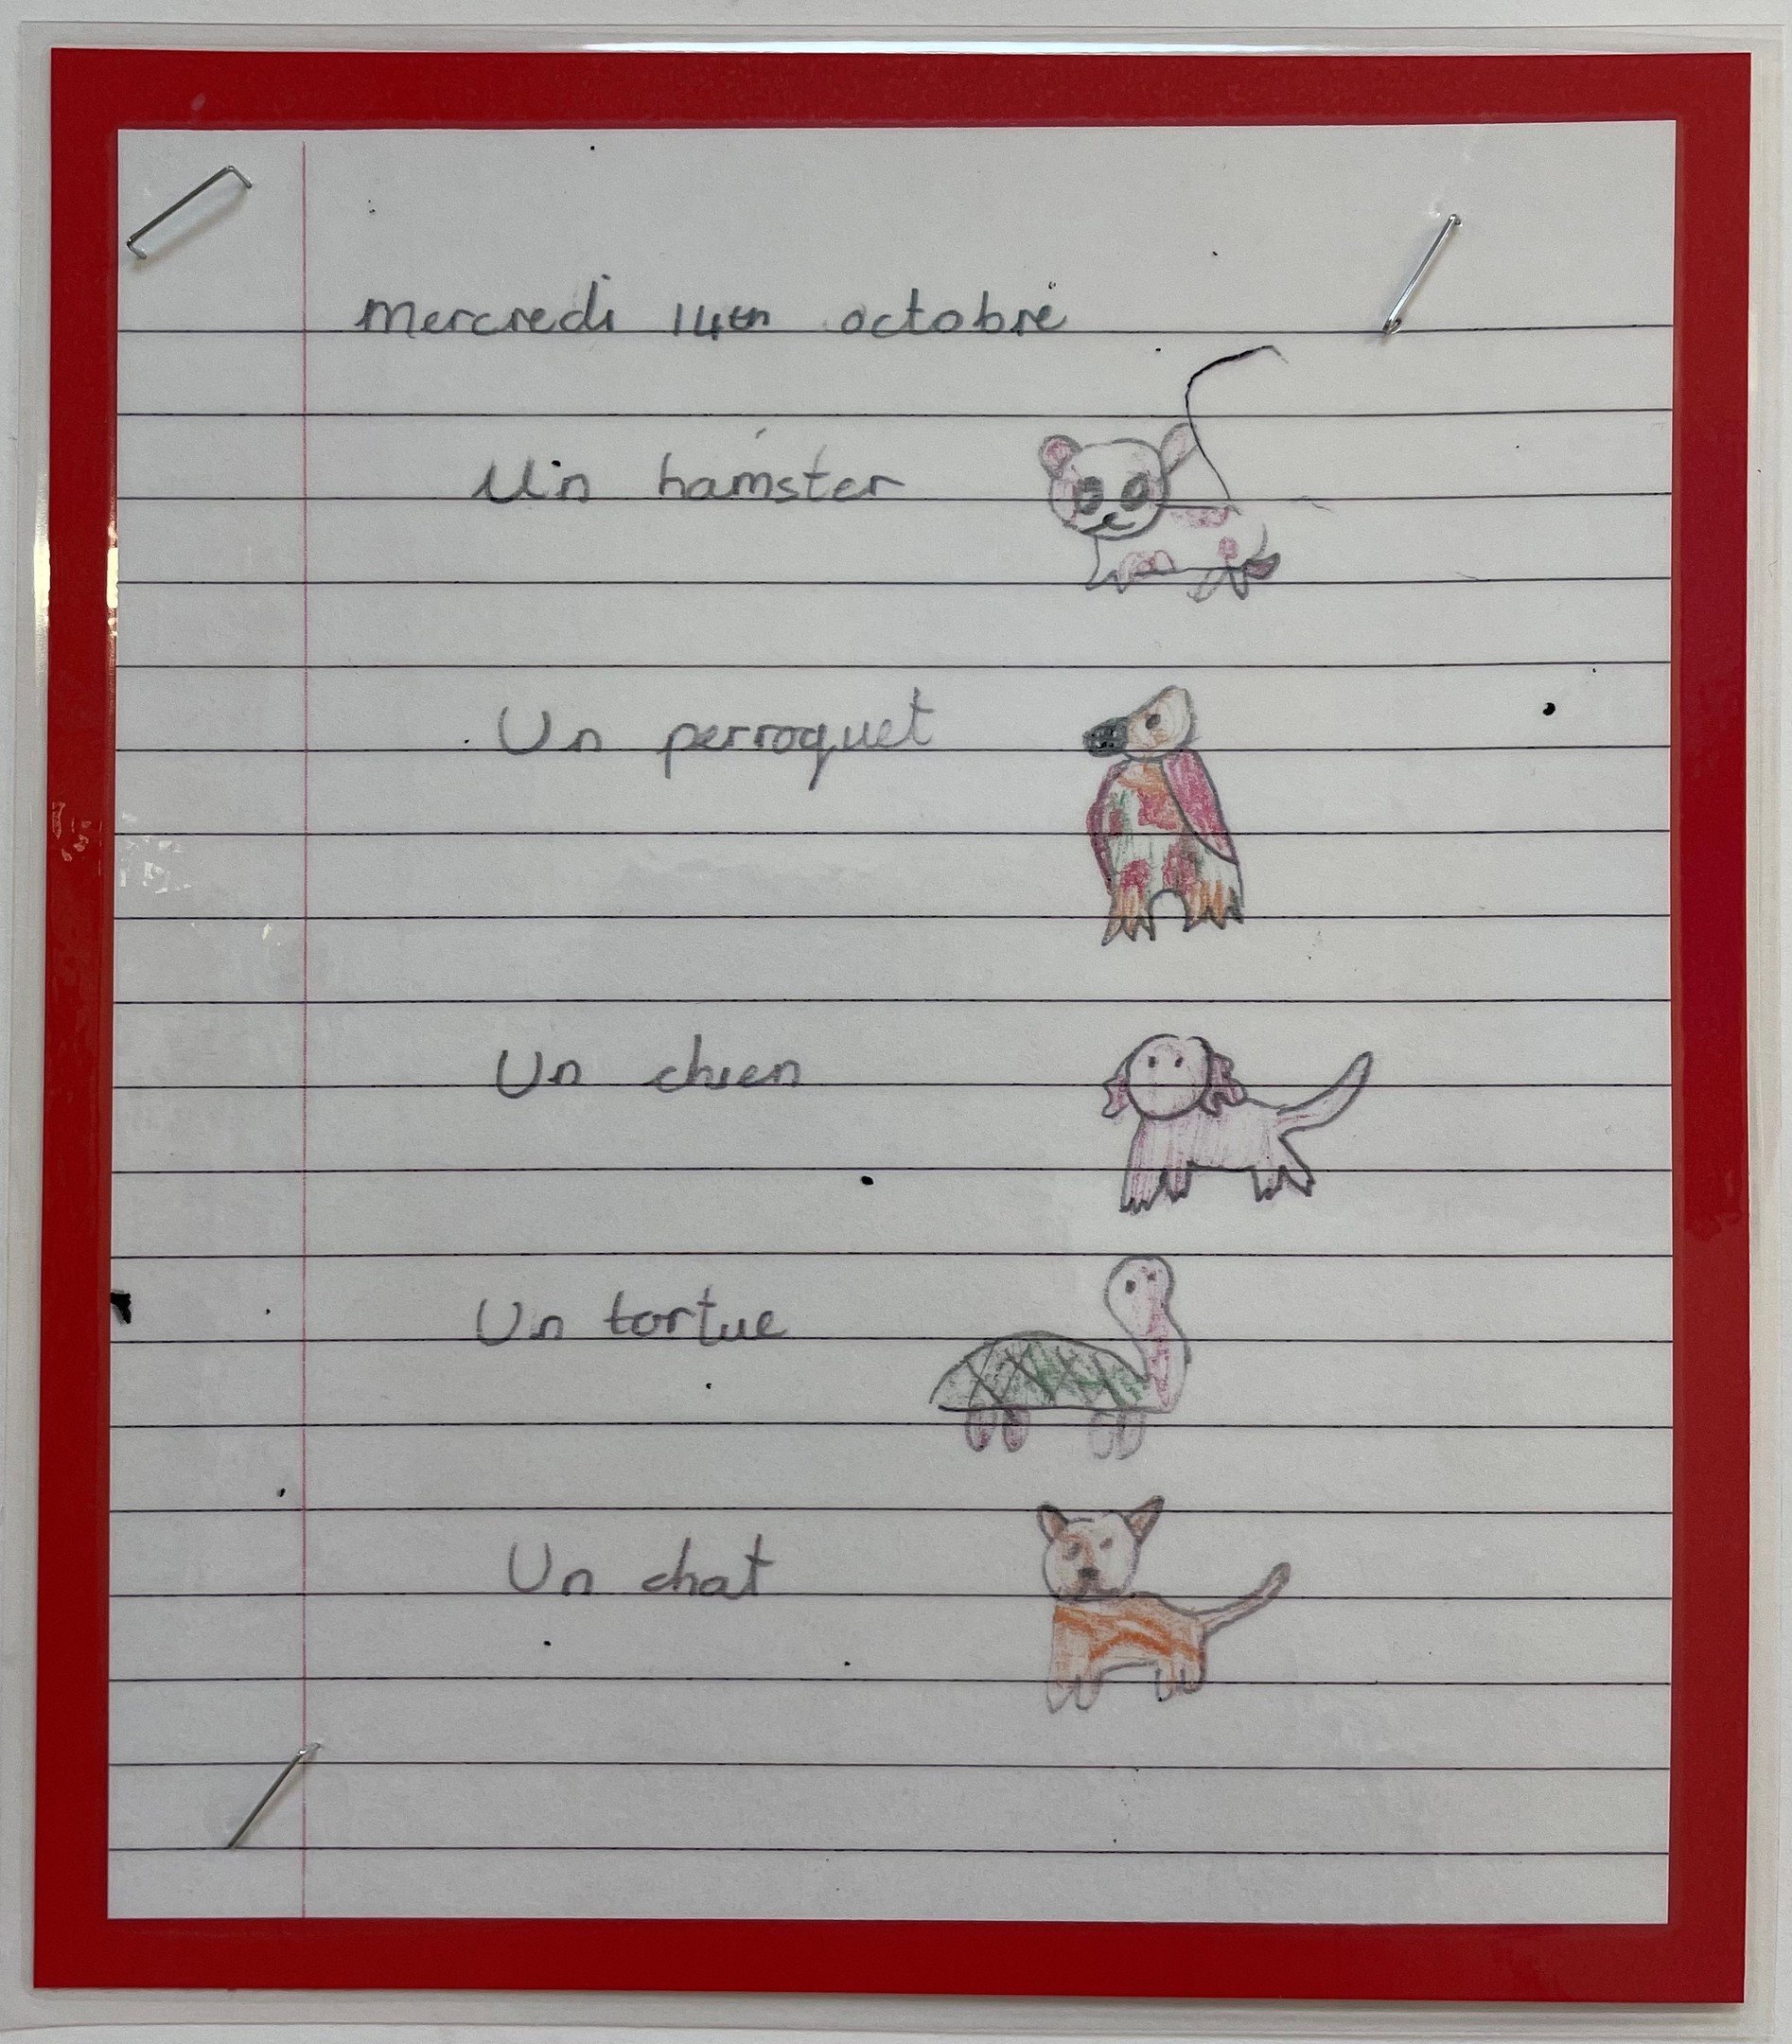 Mercredi 14th octobre
Un hamster
Un perroquet
Un chien
Un tortue
Un chat